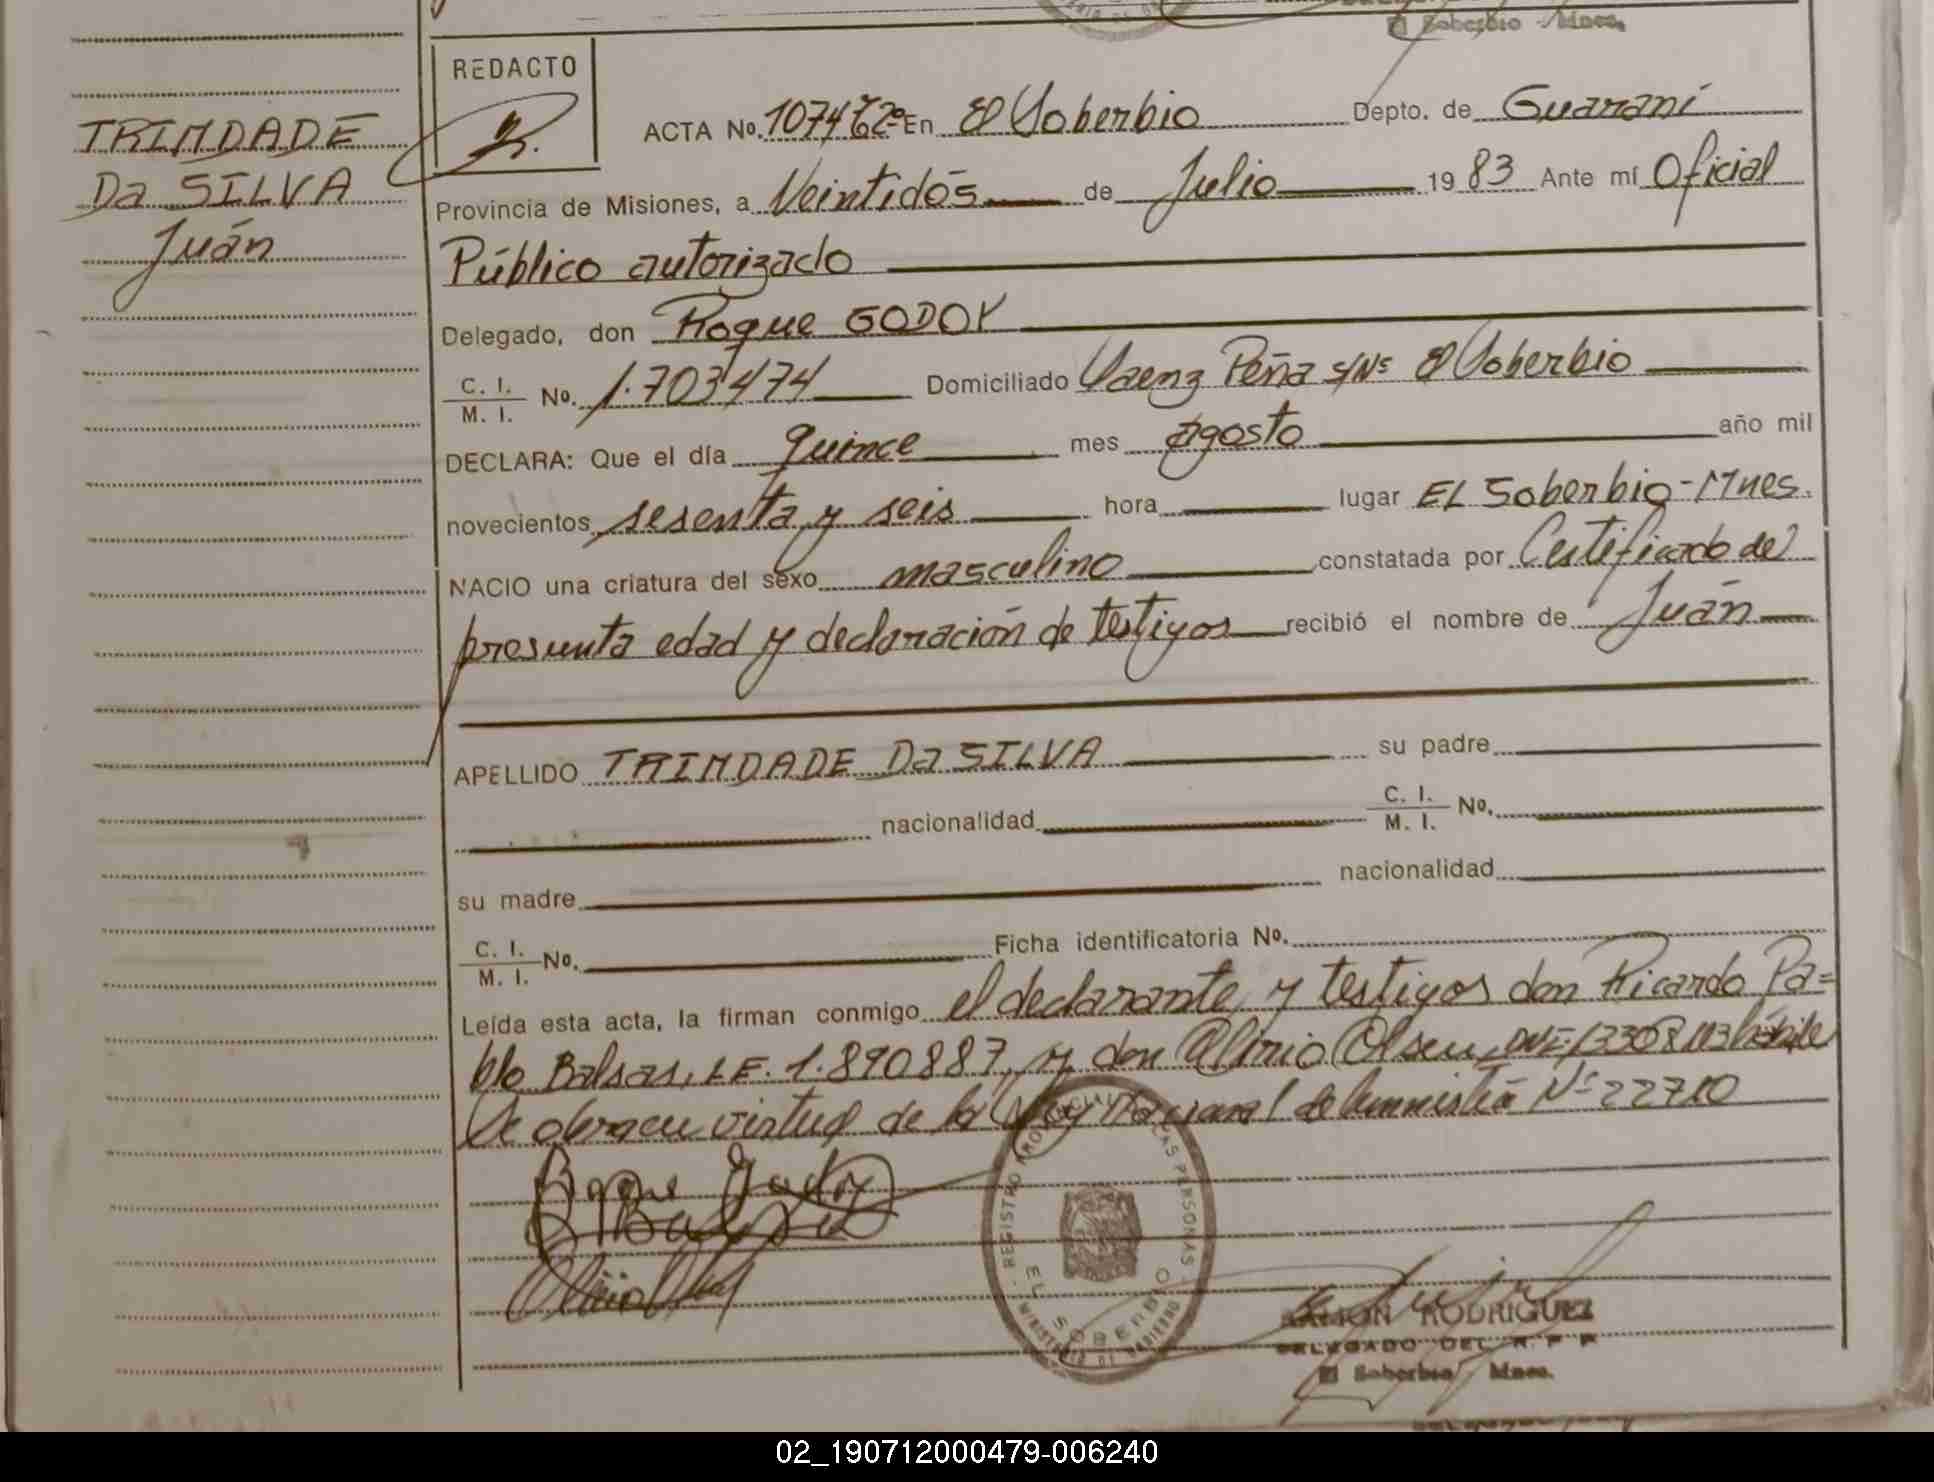 El Soberbio - Mnes.
TRINDADE
Da SILVA
Juán
REDACTO
ACTA No. 1074 Tº2º En El Soberbio Depto. de Guaraní
Provincia de Misiones, a Veintidós de Julio 19 83 Ante mí Oficial
Público autorizado
Delegado, don Roque GODOY
C. I. / M. I. No. 1.703474 Domiciliado Saenz Peña s/Nº El Soberbio
DECLARA: Que el día quince mes agosto año mil
novecientos sesenta y seis hora lugar EL Soberbio - Mnes.
NACIO una criatura del sexo masculino constatada por Certificado de
presunta edad y declaración de testigos recibió el nombre de Juán
APELLIDO TRINDADE Da SILVA su padre
nacionalidad C. I. / M. I. No.
su madre nacionalidad
C. I. / M. I. No. Ficha identificatoria No.
Leída esta acta, la firman conmigo el declarante y testigos don Ricardo Pa=
blo Balsas, L.E. 1.890887, y don Olirio Olsen
virtud de la Ley Nacional de Amnistía Nº 22710
Roque Godoy
REGISTRO PROVINCIAL PERSONAS
EL SOBERBIO
MINISTERIO DE GOBIERNO
RAMON RODRIGUEZ
DELEGADO DEL R P P
El Soberbio Mnes.
02_190712000479-006240